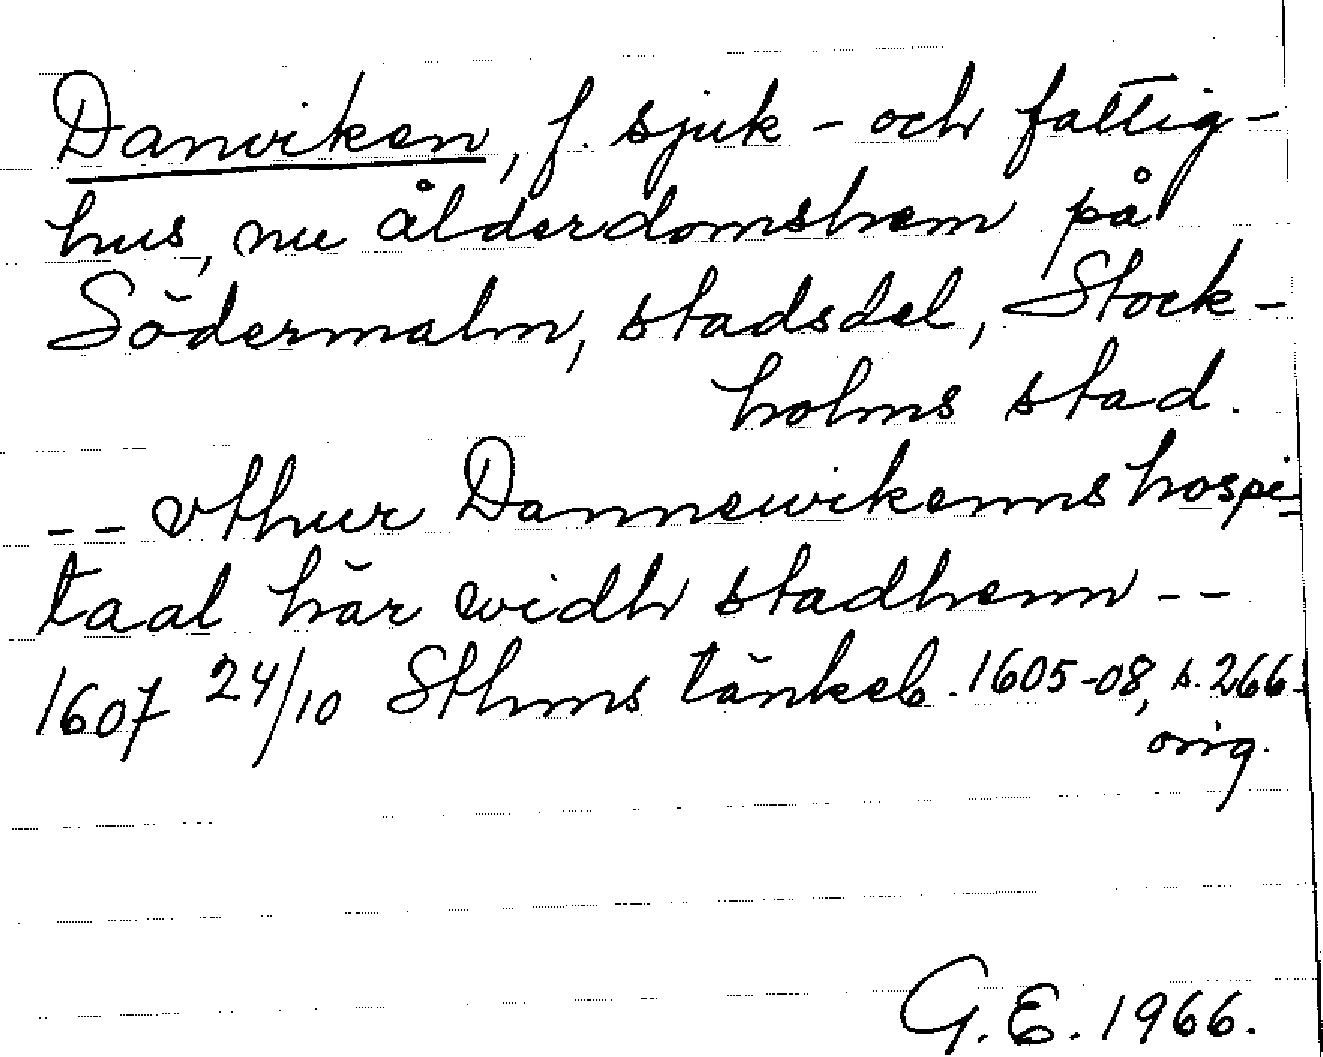 Danviken, f. sjuk- och fattig-
hus, nu ålderdomshem på
Södermalm, stadsdel, Stock-
holms stad.
-- vthur Dannewikenns hospi=
taal här widh stadhenn --
1607 24/10 Sthms tänkeb. 1605-08, s. 266.
orig.
G.E. 1966.